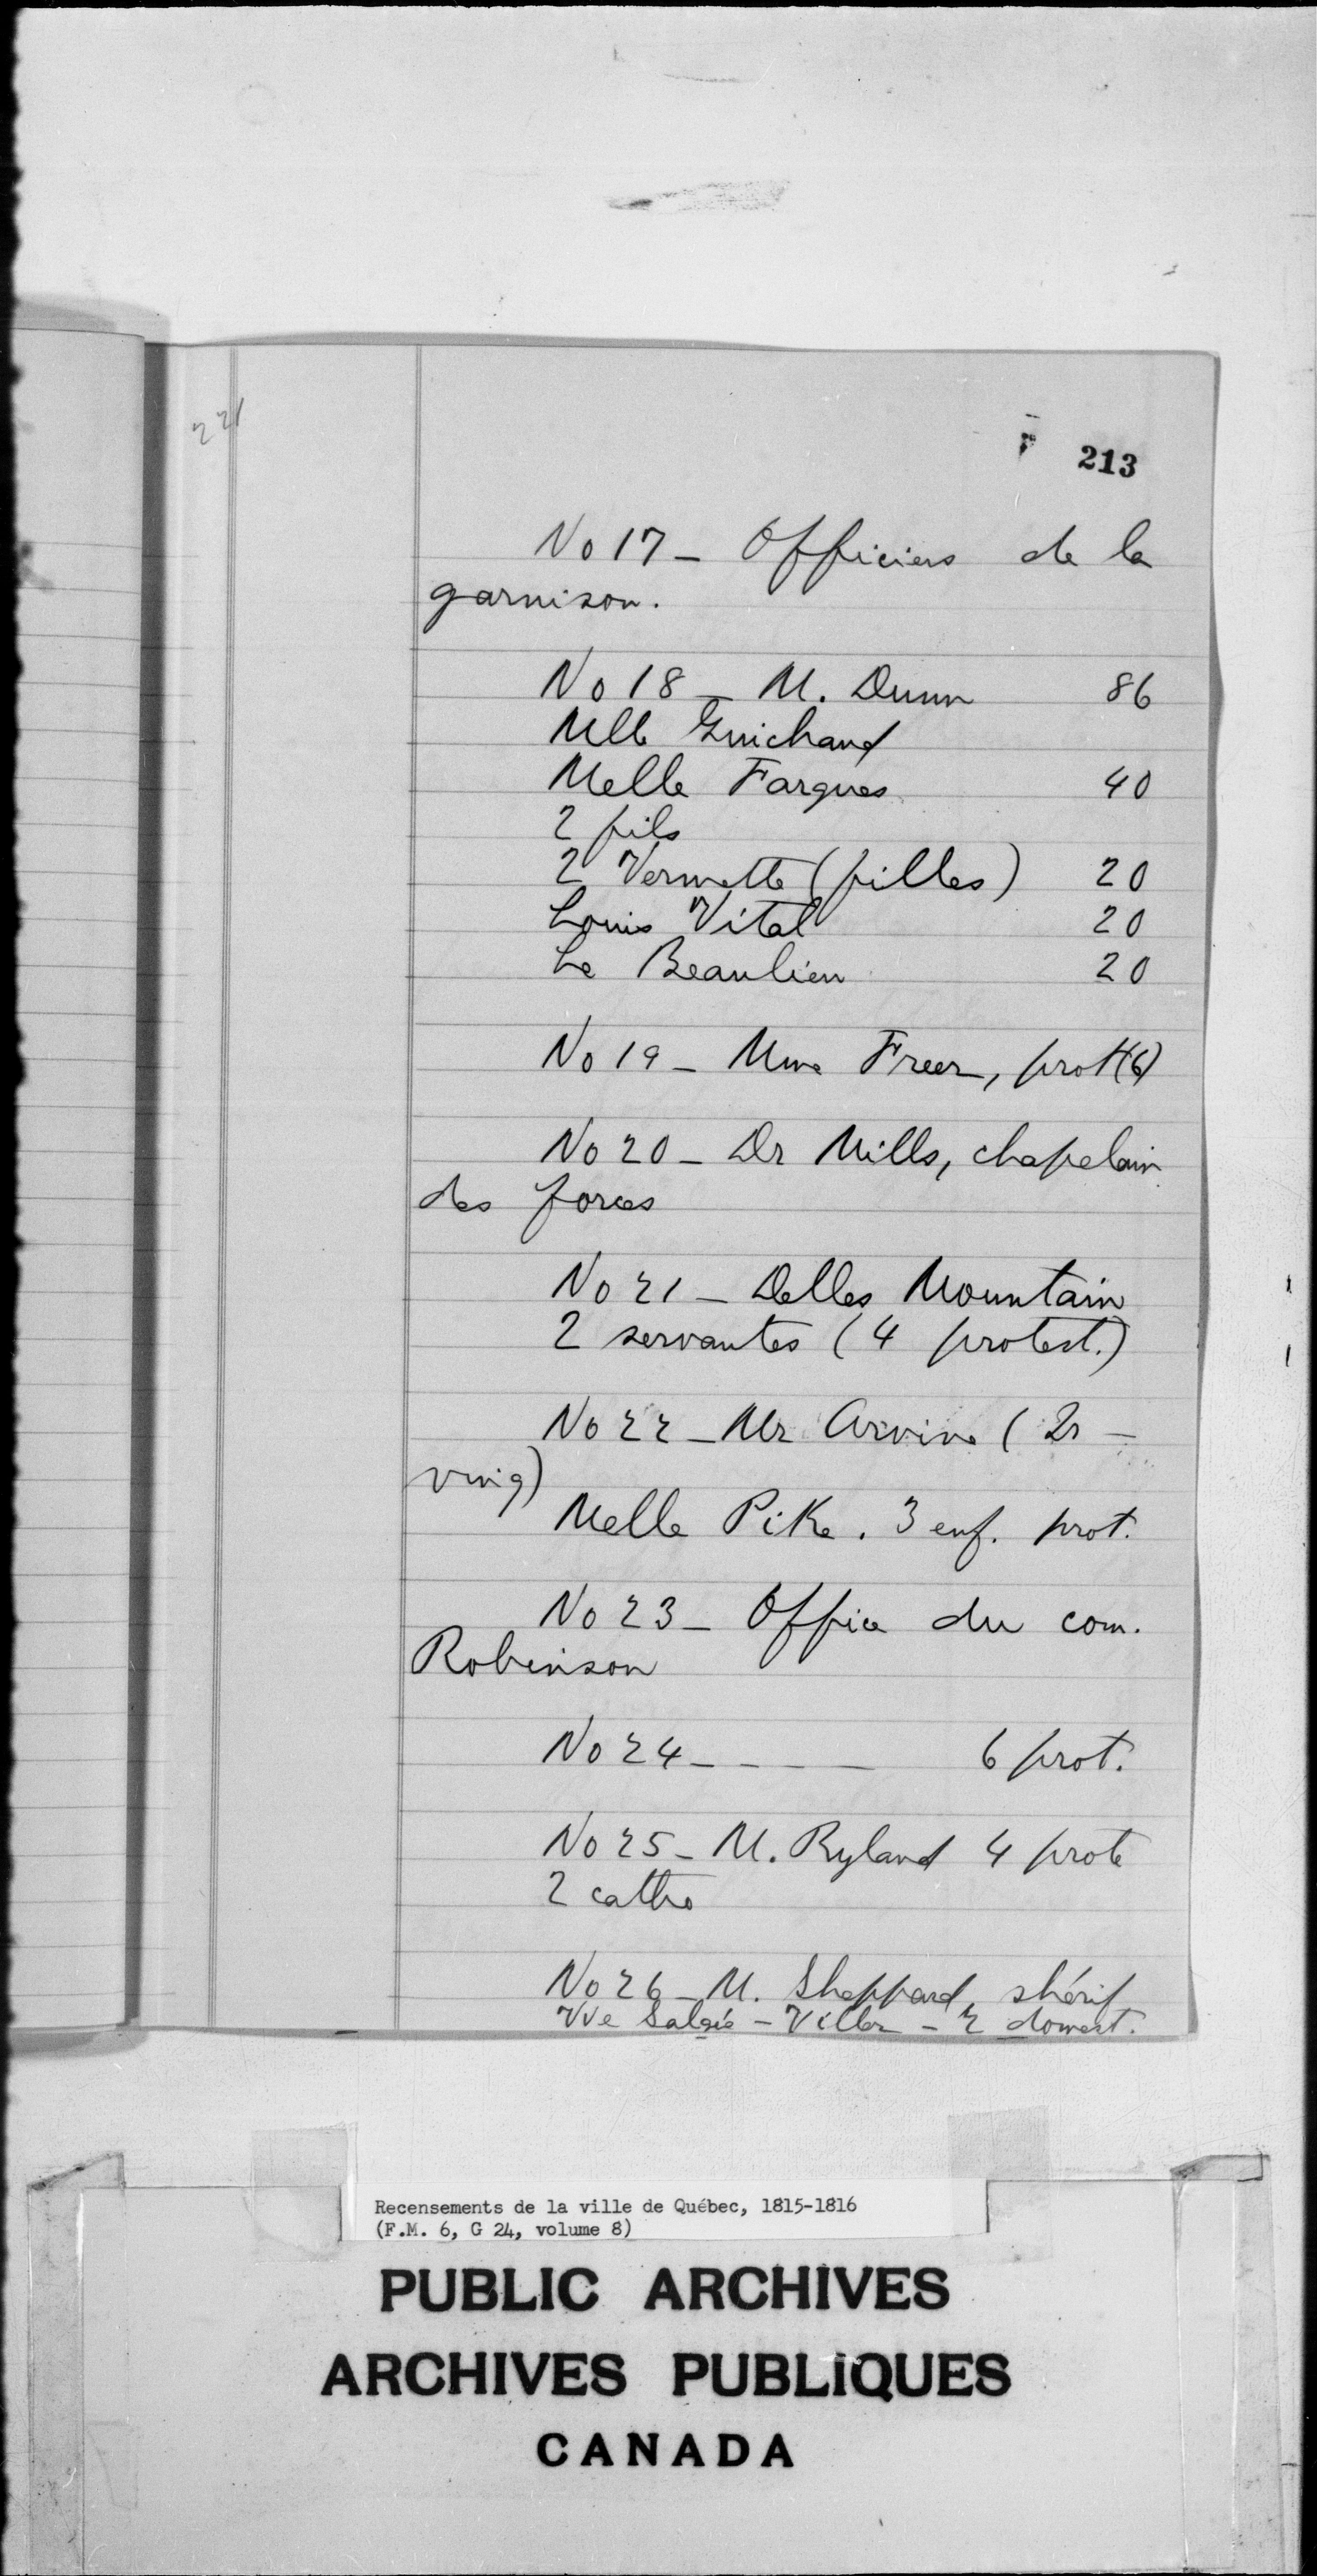 221
213
No 17 - Officiers de la
garnison.
No 18 - M. Dunn 86
Mlle Guichaud
Melle Fargues 40
2 fils
2 Vermette (filles) 20
Louis Vital 20
Le Beaulieu 20
No 19 - Mme Freer, prot (6)
No 20 - Dr Mills, chapelain
des forces
No 21 - Delles Mountain
2 servantes (4 protest.)
No 22 - Mr Arvine (Ir-
ving)
Melle Pike. 3 enf. prot.
No 23 - Office du com.
Robinson
No 24 - - - - 6 prot.
No 25 - M. Ryland 4 prote
2 catho
No 26 - M. Sheppard, shérif
Vve - 2 domest.
Recensements de la ville de Québec, 1815-1816
(F.M. 6, G 24, volume 8)
PUBLIC ARCHIVES
ARCHIVES PUBLIQUES
CANADA